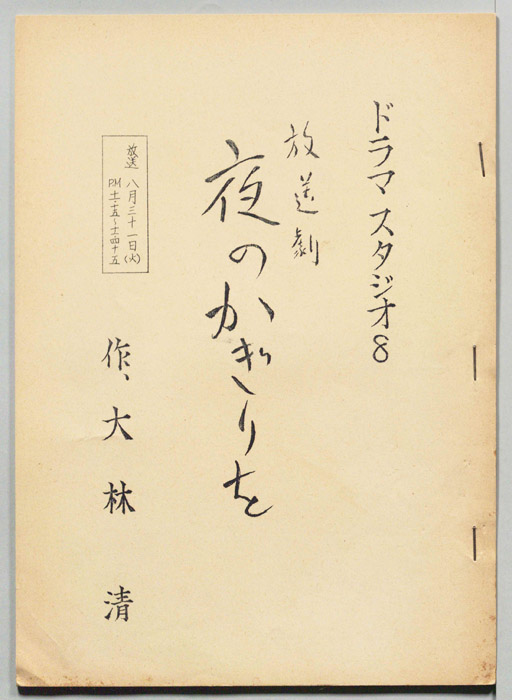 ドラマスタジオ8
放送劇
夜のかぎりを
放送 八月三十一日(火)
PM 十一・十五〜十一・四十五
作、大林 清